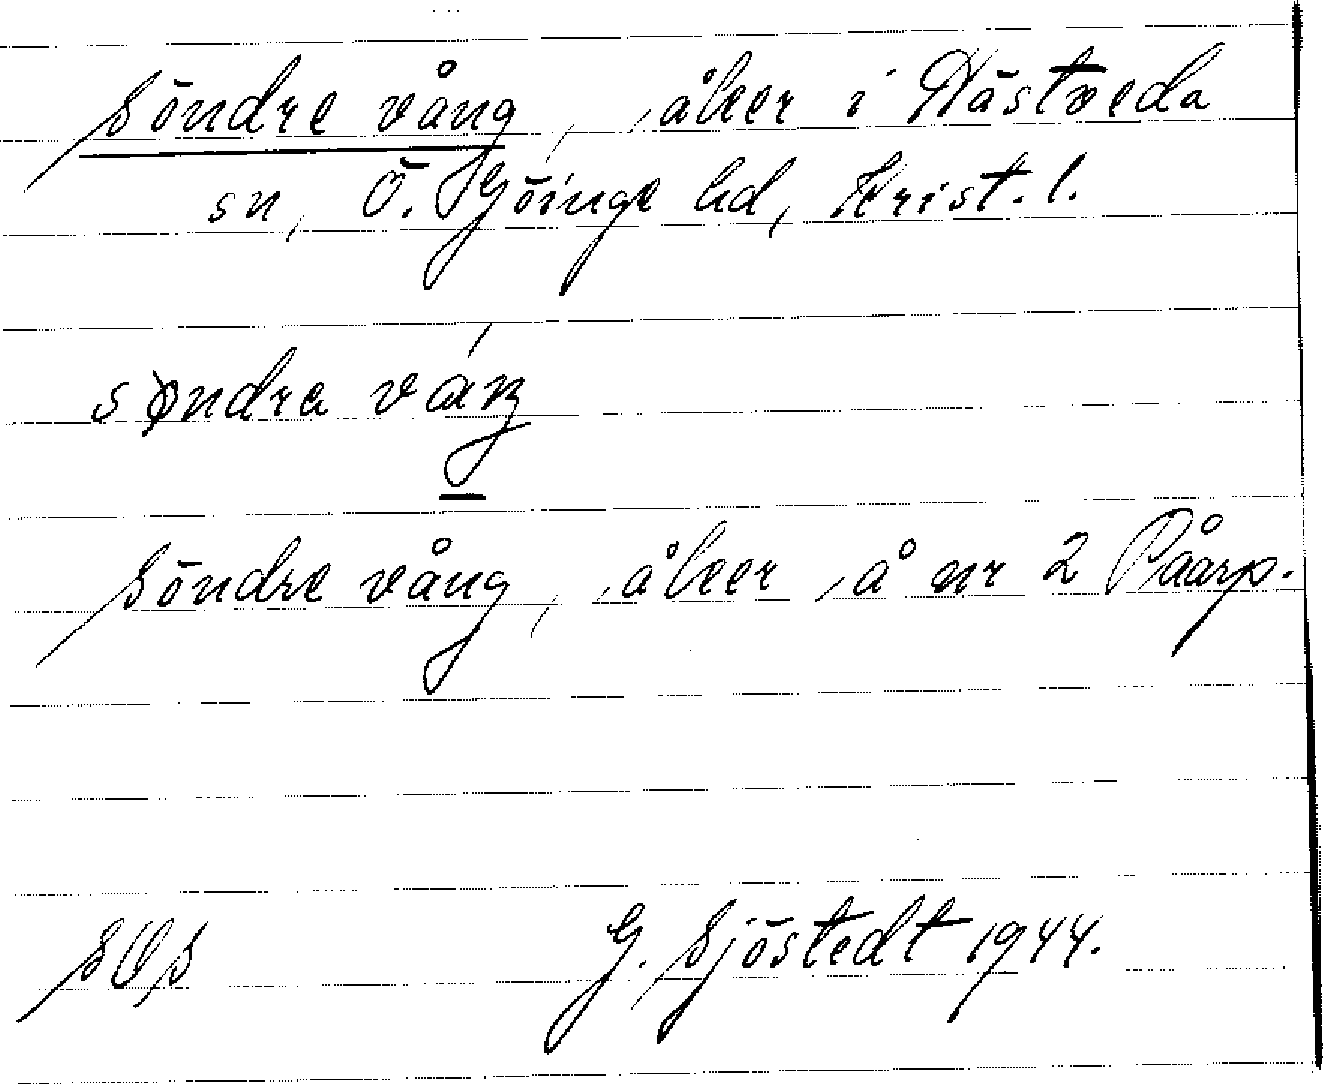 Söndre vång, åker i Hästveda
sn, Ö. Göinge hd, Krist. l.
søndra váŋ
Söndre vång, åker å nr 2 Påarp.
SOS G. Sjöstedt 1944.